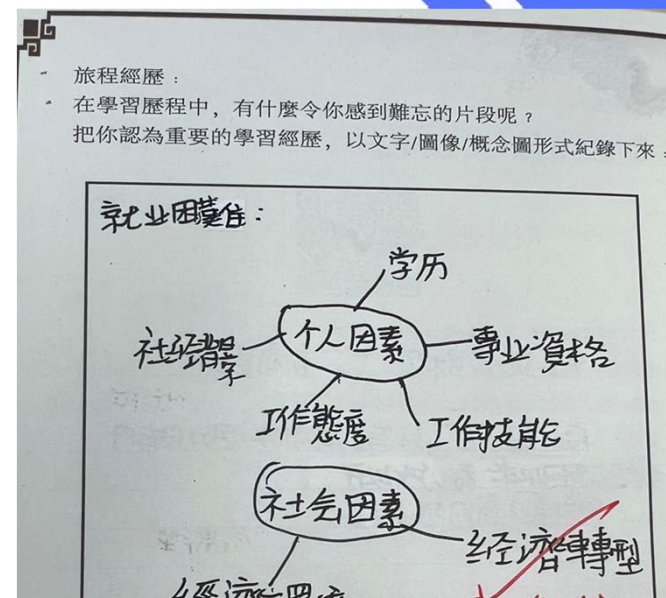 旅程經歷：
在學習歷程中，有什麼令你感到難忘的片段呢？
把你認為重要的學習經歷，以文字/圖像/概念圖形式紀錄下來：
就业困難：
学历
个人因素
社經背景
專业資格
工作態度
工作技能
社会因素
經濟轉型
經濟